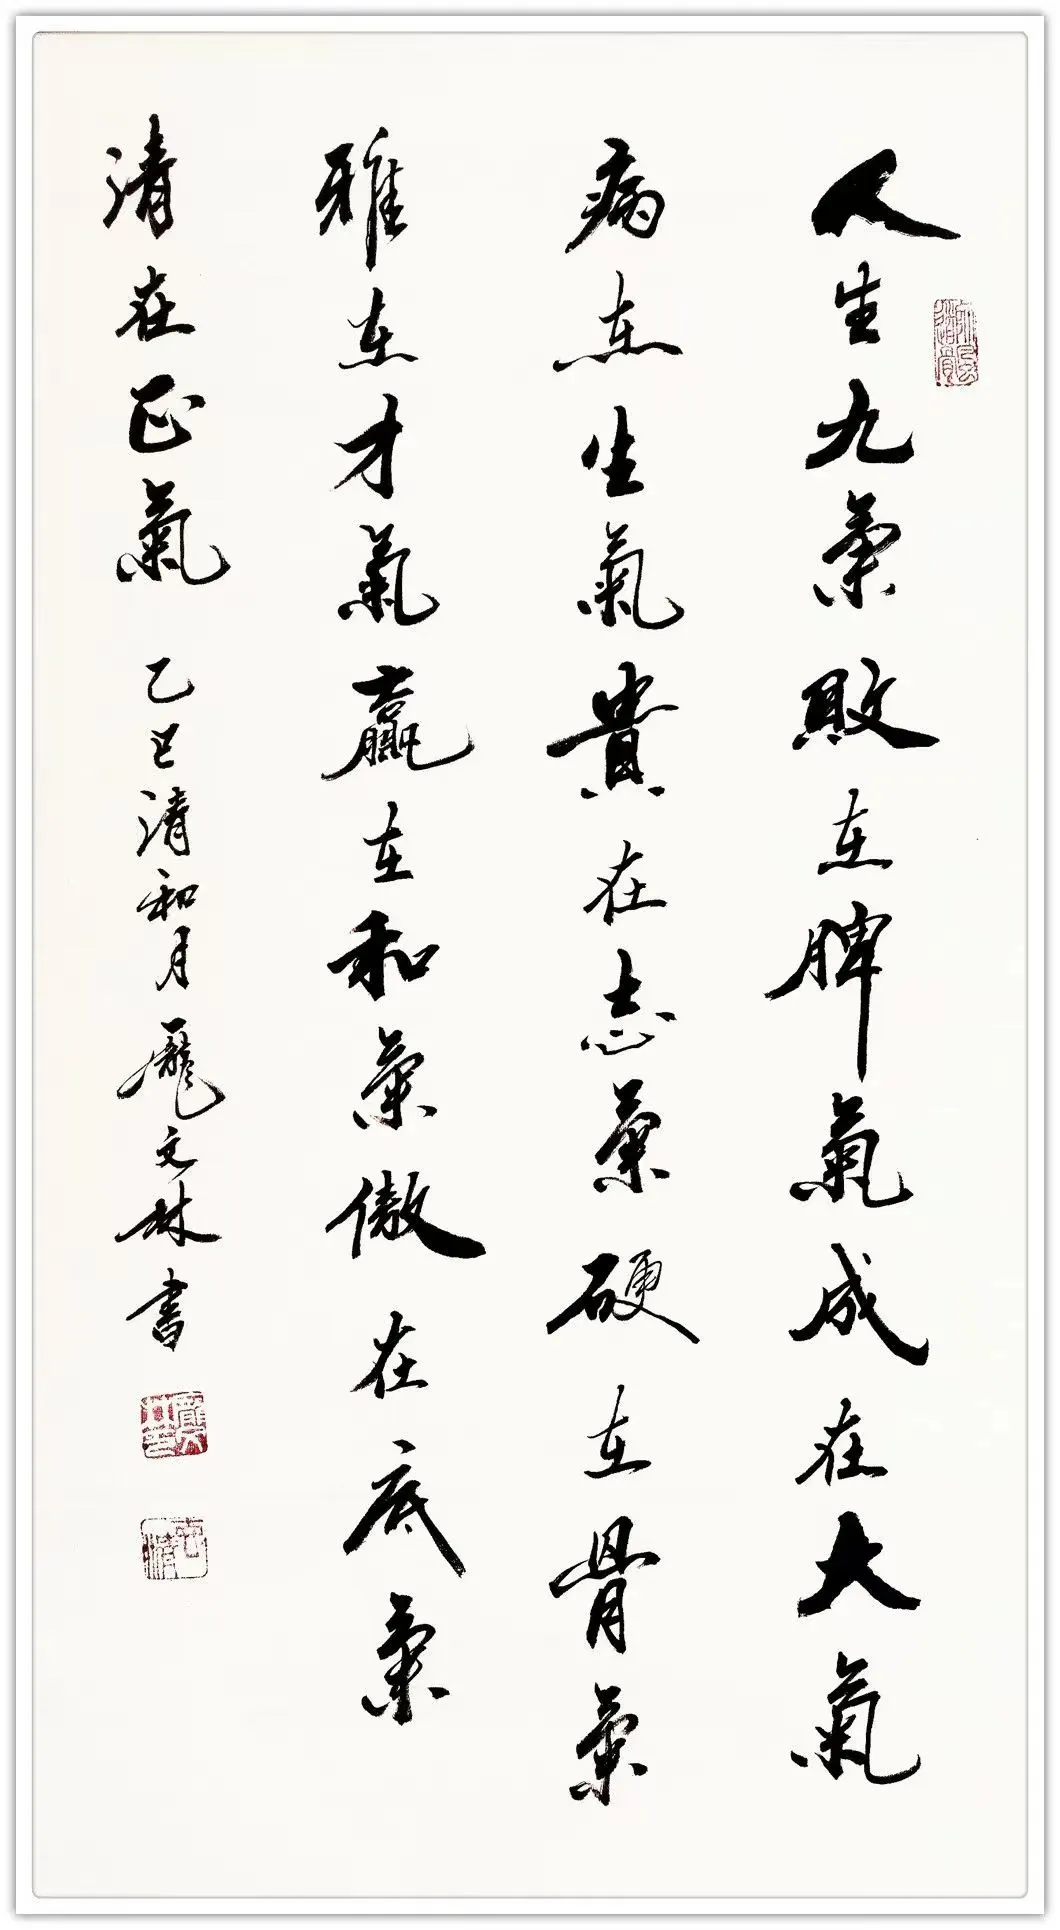 人生九氣敗在脾氣成在大氣
病在生氣貴在志氣硬在骨氣
雅在才氣贏在和氣傲在底氣
清在正氣 乙巳清和月龐文林書